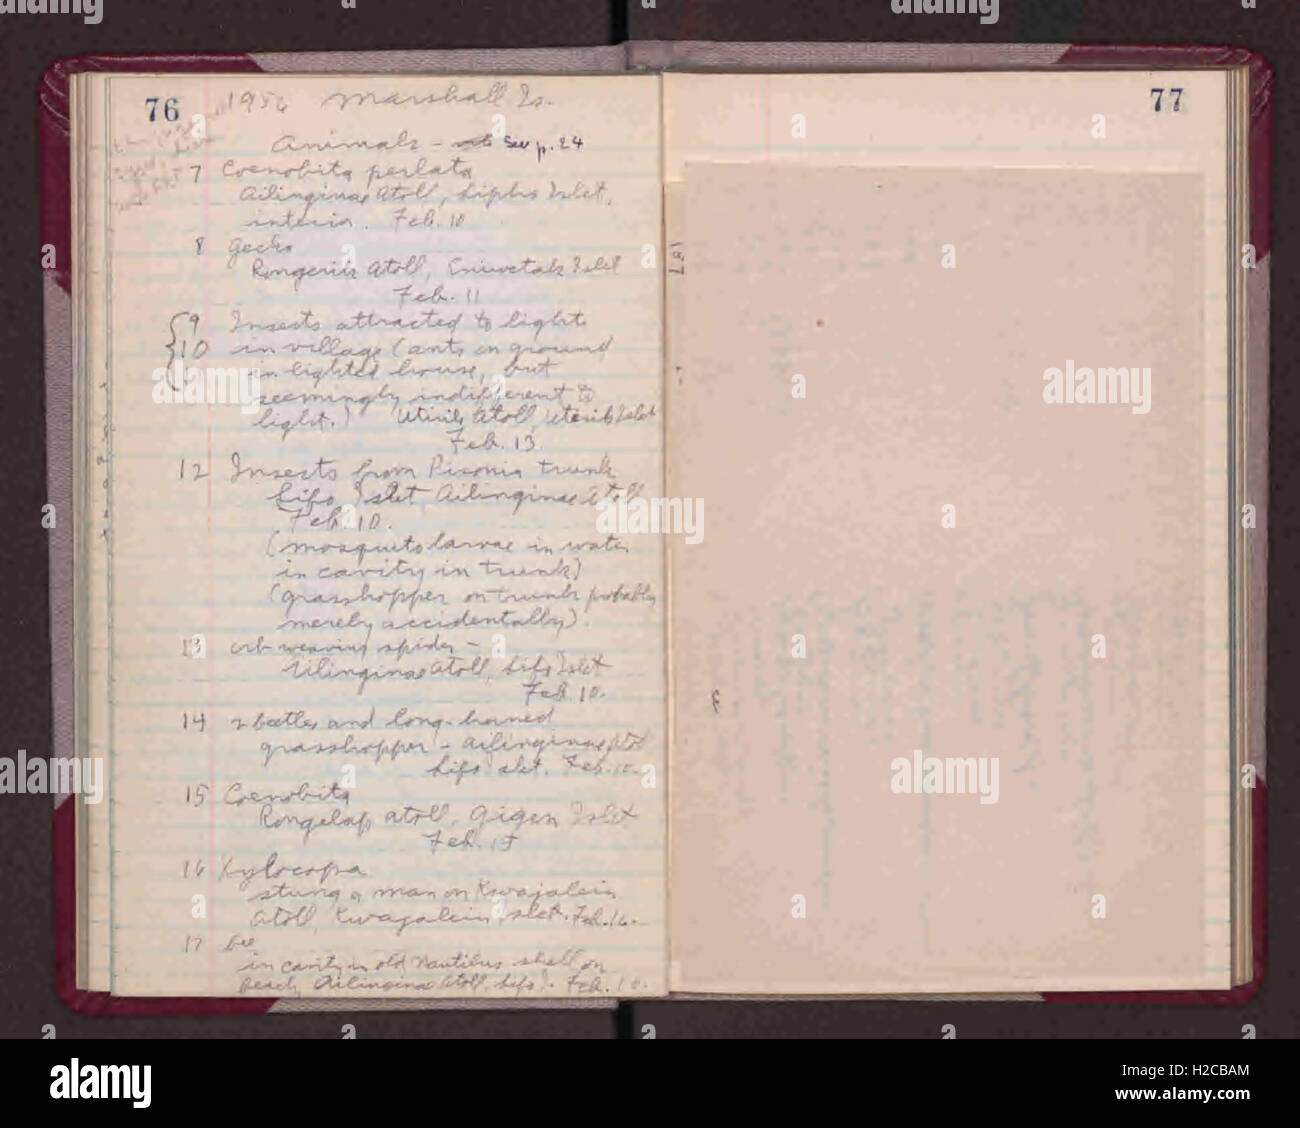 76
1956 Marshall Is.
Animals - see p. 24
7 Coenobita perlata
Ailinginae Atoll, Sifo Islet,
interior. Feb. 10
8 Gecko
Rongerik Atoll, Eniwetak Islet
Feb. 11
9 Insects attracted to lights
10 in village (ants on ground
in lighted house, but
seemingly indifferent to
light.) Utirik Atoll, Utirik Islet
Feb. 13
12 Insects from Pisonia trunk
Sifo Islet, Ailinginae Atoll
Feb. 10.
(mosquito larvae in water
in cavity in trunk)
(grasshopper on trunk probably
merely accidentally).
13 orb weaving spider -
Ailinginae Atoll, Sifo Islet
Feb. 10.
14 2 beetles and long-horned
grasshopper - Ailinginae Atoll
Sifo Islet. Feb. 10.
15 Coenobita
Rongelap Atoll, Gigen Islet
Feb. 15
16 Xylocopa
stung a man on Kwajalein
Atoll, Kwajalein Islet. Feb. 16.
17 bee
in cavity in old Nautilus shell on
beach, Ailinginae Atoll, Sifo I. Feb. 10.
77
alamy
alamy
alamy
alamy
alamy
alamy
alamy
Image ID: H2CBAM
www.alamy.com